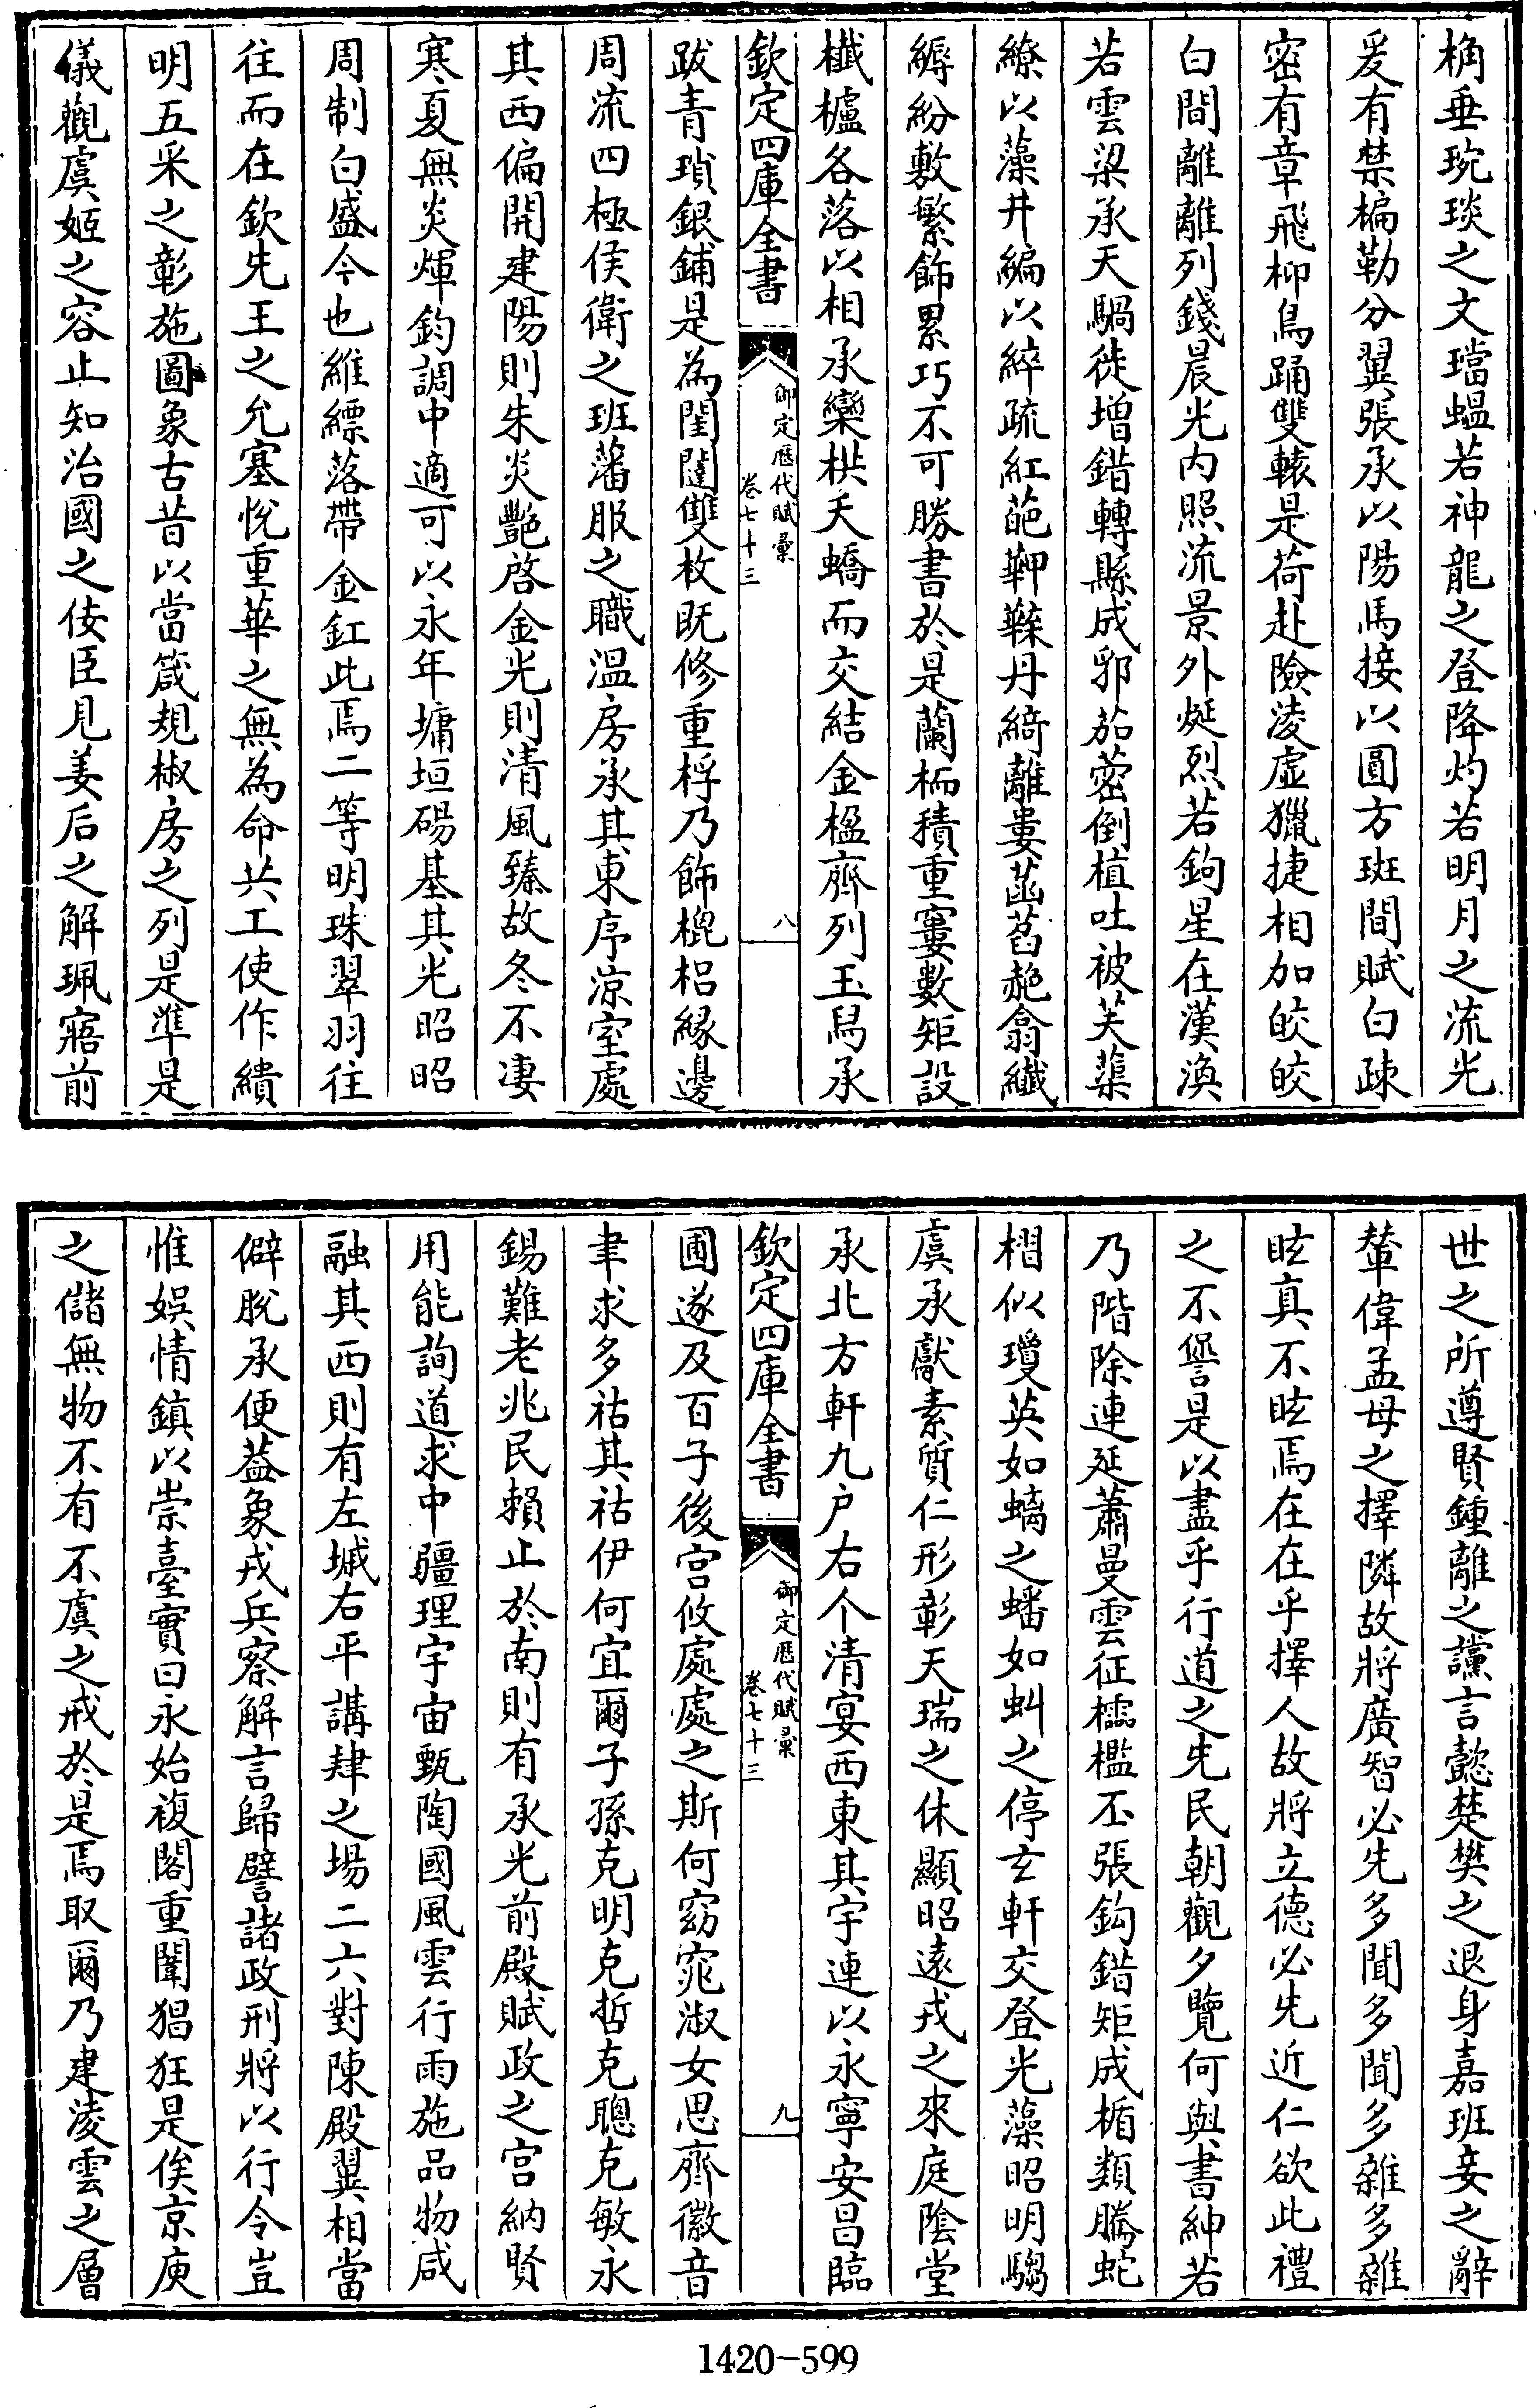 桷垂琬琰之文璫蝹若神龍之登降灼若明月之流光
爰有禁楄勒分翼張承以陽馬接以圓方斑間賦白疎
密有章飛枊鳥踊雙轅是荷赴險凌虛獵捷相加皎皎
白間離離列錢晨光内照流景外烻烈若鉤星在漢渙
若雲梁承天騧徙増錯轉縣成郛茄蔤倒植吐被芙蕖
繚以藻井編以綷疏紅葩䪞䪤丹綺離婁菡萏赩翕纖
縟紛敷繁飾累巧不可勝書於是蘭栭積重窶數矩設
櫼櫨各落以相承欒栱夭蟜而交結金楹齊列玉舄承
欽定四庫全書
御定歴代賦彙
卷七十三
八
跋青瑣銀鋪是為閨闥雙枚既修重桴乃飾㮰梠縁邊
周流四極侯衛之班藩服之職温房承其東序凉室處
其西偏開建陽則朱炎豔啓金光則清風臻故冬不凄
寒夏無炎燀鈞調中適可以永年墉垣碭基其光昭昭
周制白盛今也維縹落帶金釭此焉二等明珠翠羽往
往而在欽先王之允塞悅重華之無為命共工使作繢
明五采之彰施圖象古昔以當箴規椒房之列是準是
儀觀虞姬之容止知治國之佞臣見姜后之解珮寤前
世之所遵賢鍾離之讜言懿楚樊之退身嘉班妾之辭
輦偉孟母之擇隣故將廣智必先多聞多聞多雜多雜
眩真不眩焉在在乎擇人故將立德必先近仁欲此禮
之不諐是以盡乎行道之先民朝觀夕覽何與書紳若
乃階除連延蕭曼雲征櫺檻丕張鈎錯矩成楯類騰蛇
槢似瓊英如螭之蟠如虯之停玄軒交登光藻昭明騶
虞承獻素質仁形彰天瑞之休顯昭遠戎之來庭陰堂
承北方軒九户右个清宴西東其宇連以永寧安昌臨
欽定四庫全書
御定歴代賦彙
卷七十三
九
圃遂及百子後宫攸處處之斯何窈窕淑女思齊徽音
聿求多祜其祜伊何宜爾子孫克明克哲克聰克敏永
錫難老兆民賴止於南則有承光前殿賦政之宫納賢
用能詢道求中疆理宇宙甄陶國風雲行雨施品物咸
融其西則有左墄右平講肄之場二六對陳殿翼相當
僻脫承便葢象戎兵察解言歸譬諸政刑將以行令豈
惟娯情鎮以崇臺實曰永始複閣重闈猖狂是俟京庾
之儲無物不有不虞之戒於是焉取爾乃建淩雲之層
1420-599